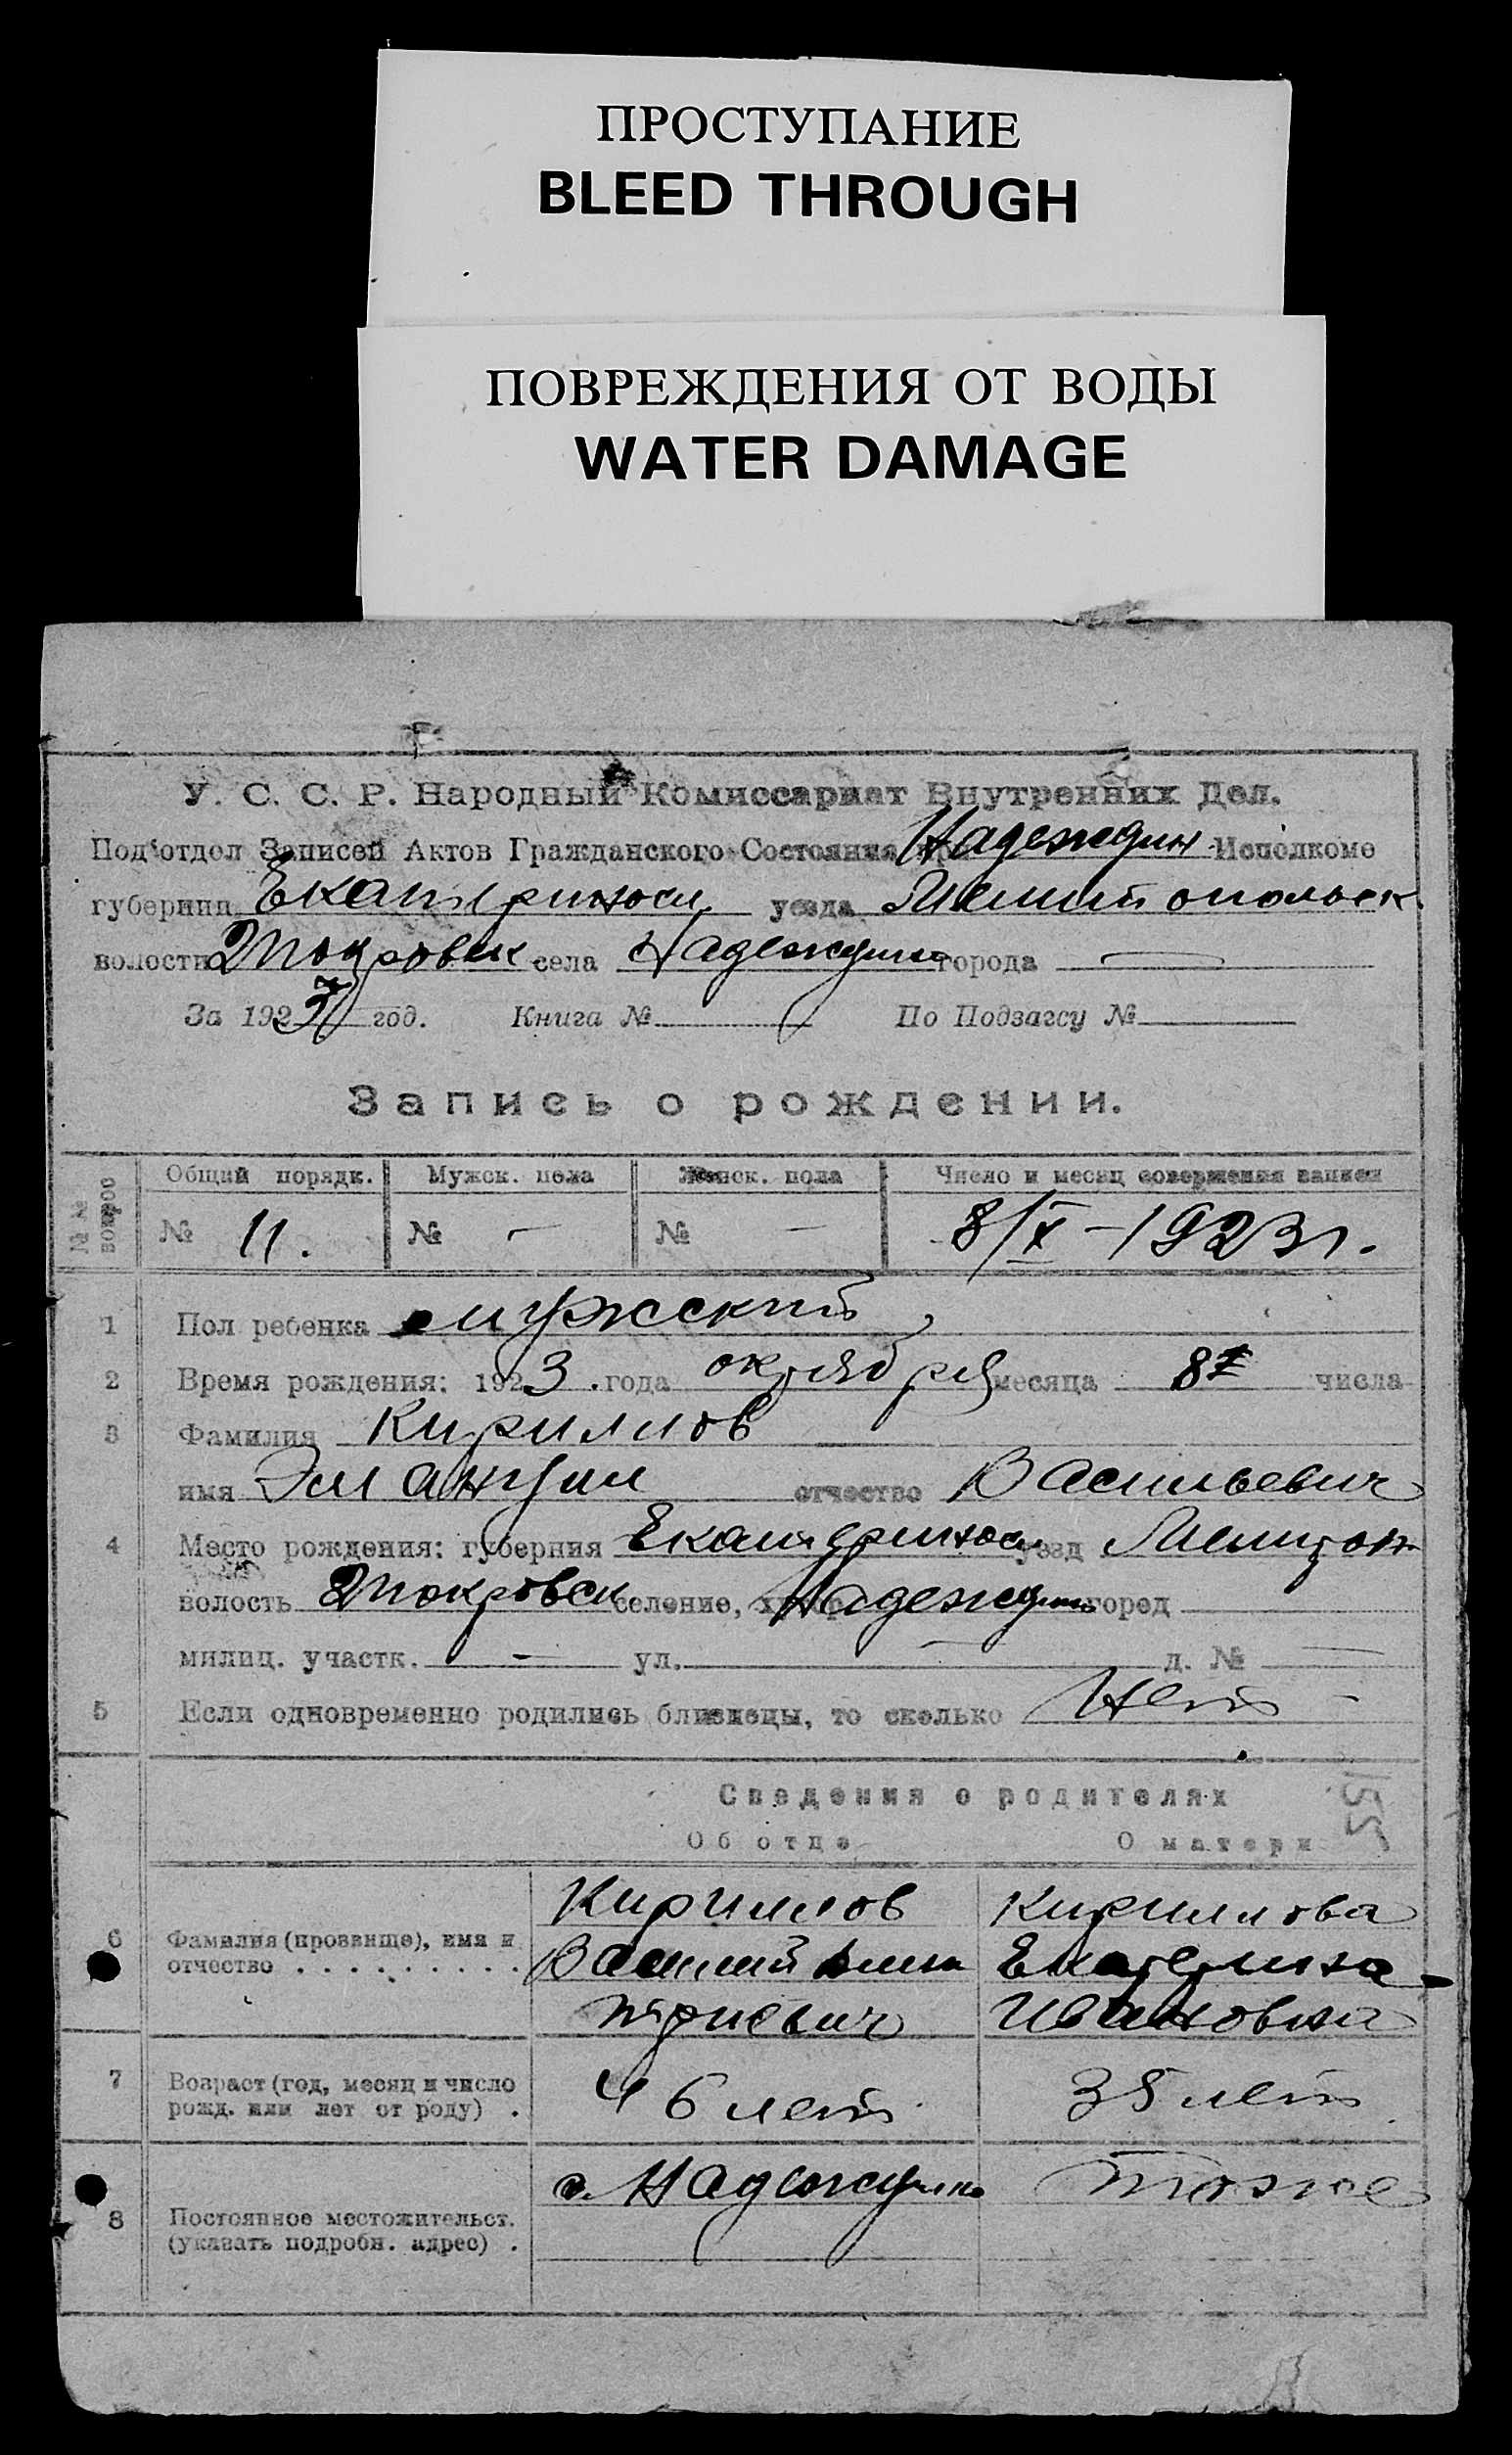 ПРОСТУПАНИЕ
BLEED THROUGH
ПОВРЕЖДЕНИЯ ОТ ВОДЫ
WATER DAMAGE
У. С. С. Р. Народный Комиссариат Внутренних Дел.
Под'отдел Записей Актов Гражданского Состояния при Надеждин Исполкоме
губернии Екатериносл. уезда Мелитопольск.
волости Покровск. села Надеждино города —
За 1923 год. Книга № По Подзагсу №
Запись о рождении.
№№ вопрос
Общий порядк. Мужск. пола Женск. пола Число и месяц совершения записи
№ 11. № — № — 8/X - 1923 г.
1 Пол ребенка мужский
2 Время рождения: 1923 .года октября месяца 8 числа
3 Фамилия Кириллов
имя отчество Васильевич
4 Место рождения: губерния Екатериносл уезд Мелитоп
волость Покровск селение, Надеждино город
милиц. участк. — ул. — д. № —
5 Если одновременно родились близнецы, то сколько Нет —
155
Сведения о родителях
Об отце О матери
Кириллов Кириллова
6 Фамилия (прозвище), имя и Василий Дми Екатерина
отчество . . . . . . . . . триевич Ивановна
7 Возраст (год, месяц и число 46 лет 38 лет
рожд. или лет от роду) .
с. Надеждино тоже
8 Постоянное местожительст.
(указать подробн. адрес) .